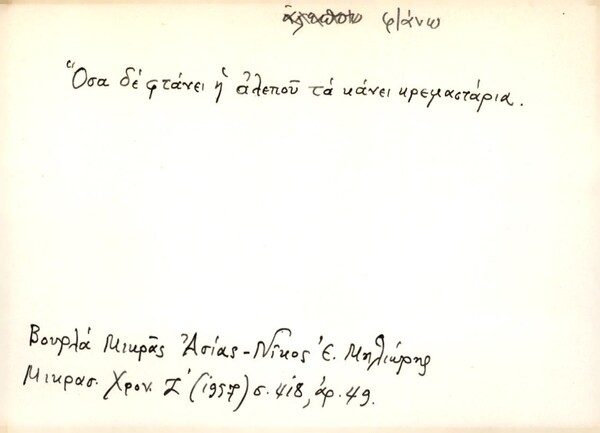 φτάνω
Ὅσα δέ φτάνει ἡ ἀλεποῦ τά κάνει κρεμαστάρια.
Βουρλά Μικρᾶς Ἀσίας - Νῖκος Ἐ. Μηλιώρης
Μικρασ. Χρον. Ζ' (1957) σ. 418, ἀρ. 49.